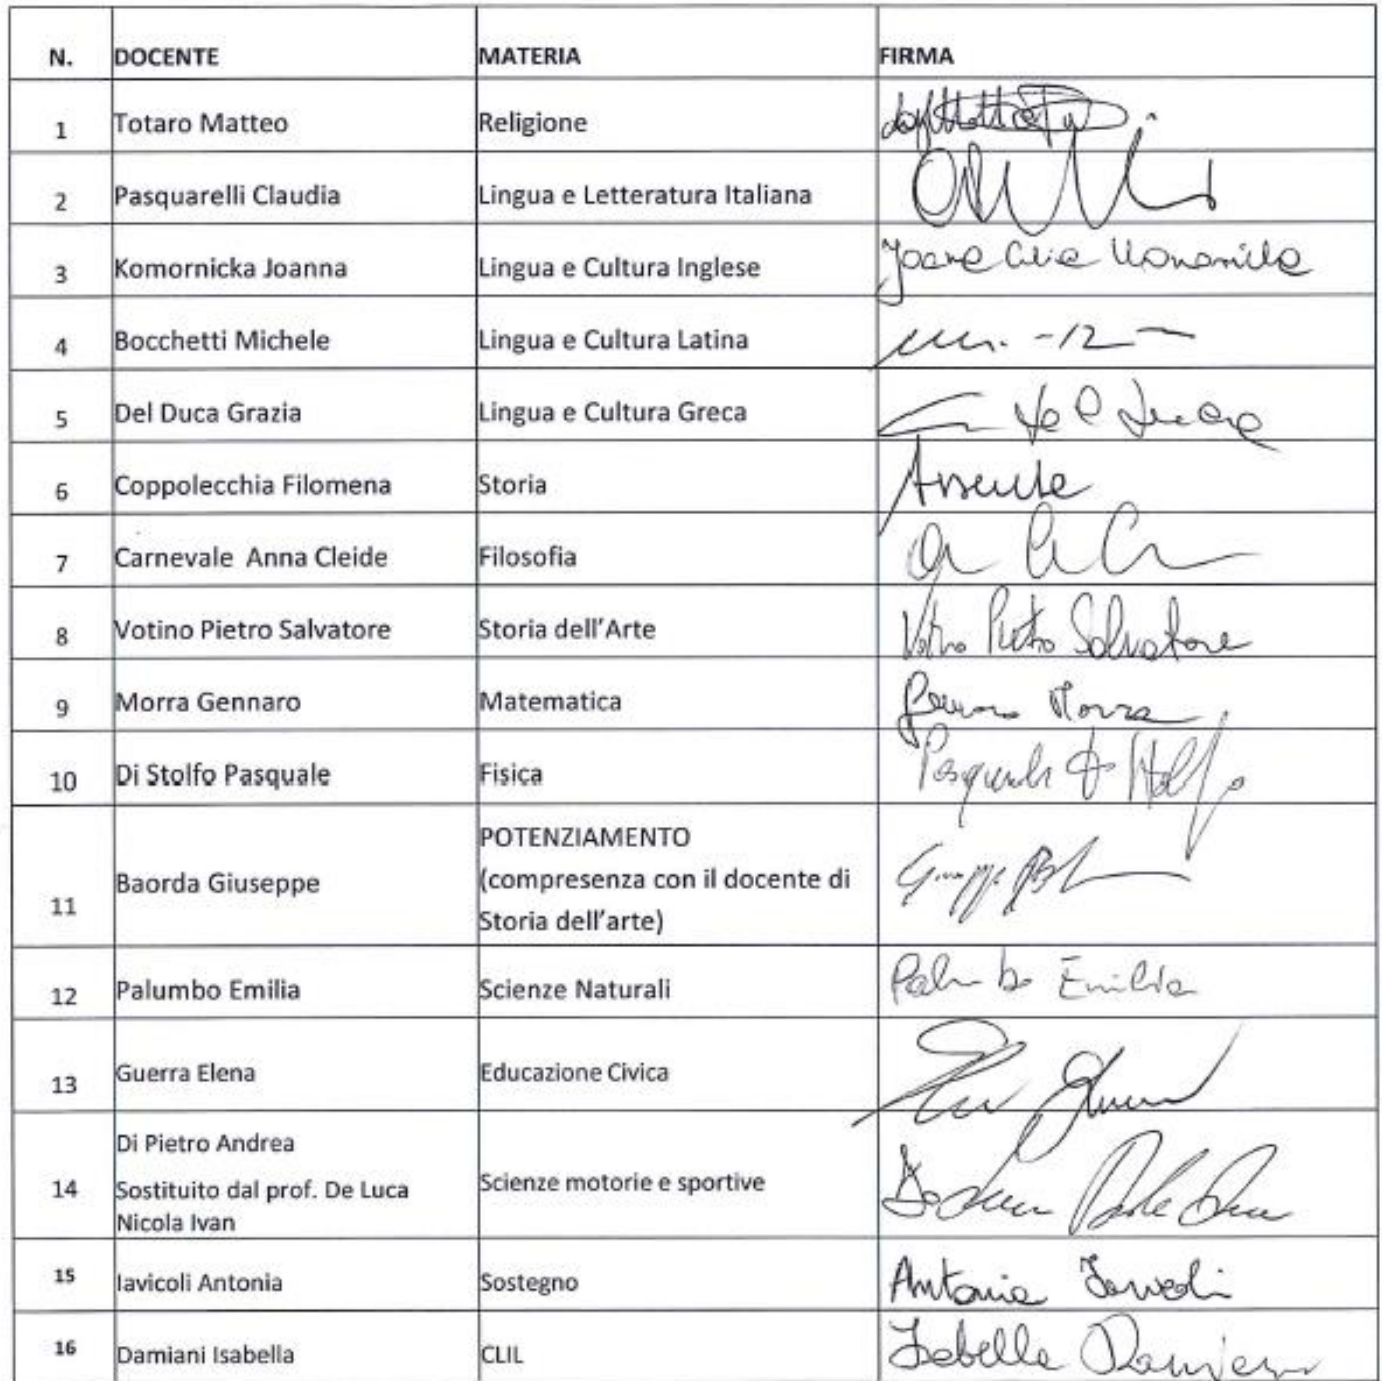 N. DOCENTE MATERIA FIRMA
1 Totaro Matteo Religione
2 Pasquarelli Claudia Lingua e Letteratura Italiana
3 Komornicka Joanna Lingua e Cultura Inglese
4 Bocchetti Michele Lingua e Cultura Latina
5 Del Duca Grazia Lingua e Cultura Greca
6 Coppolecchia Filomena Storia Assente
7 Carnevale Anna Cleide Filosofia
8 Votino Pietro Salvatore Storia dell'Arte Votino Pietro Salvatore
9 Morra Gennaro Matematica Gennaro Morra
10 Di Stolfo Pasquale Fisica Pasquale Di Stolfo
11 Baorda Giuseppe POTENZIAMENTO
(compresenza con il docente di
Storia dell'arte)
12 Palumbo Emilia Scienze Naturali Palumbo Emilia
13 Guerra Elena Educazione Civica
14 Di Pietro Andrea
Sostituito dal prof. De Luca
Nicola Ivan
Scienze motorie e sportive
15 Iavicoli Antonia Sostegno Antonia Iavicoli
16 Damiani Isabella CLIL Isabella Damiani